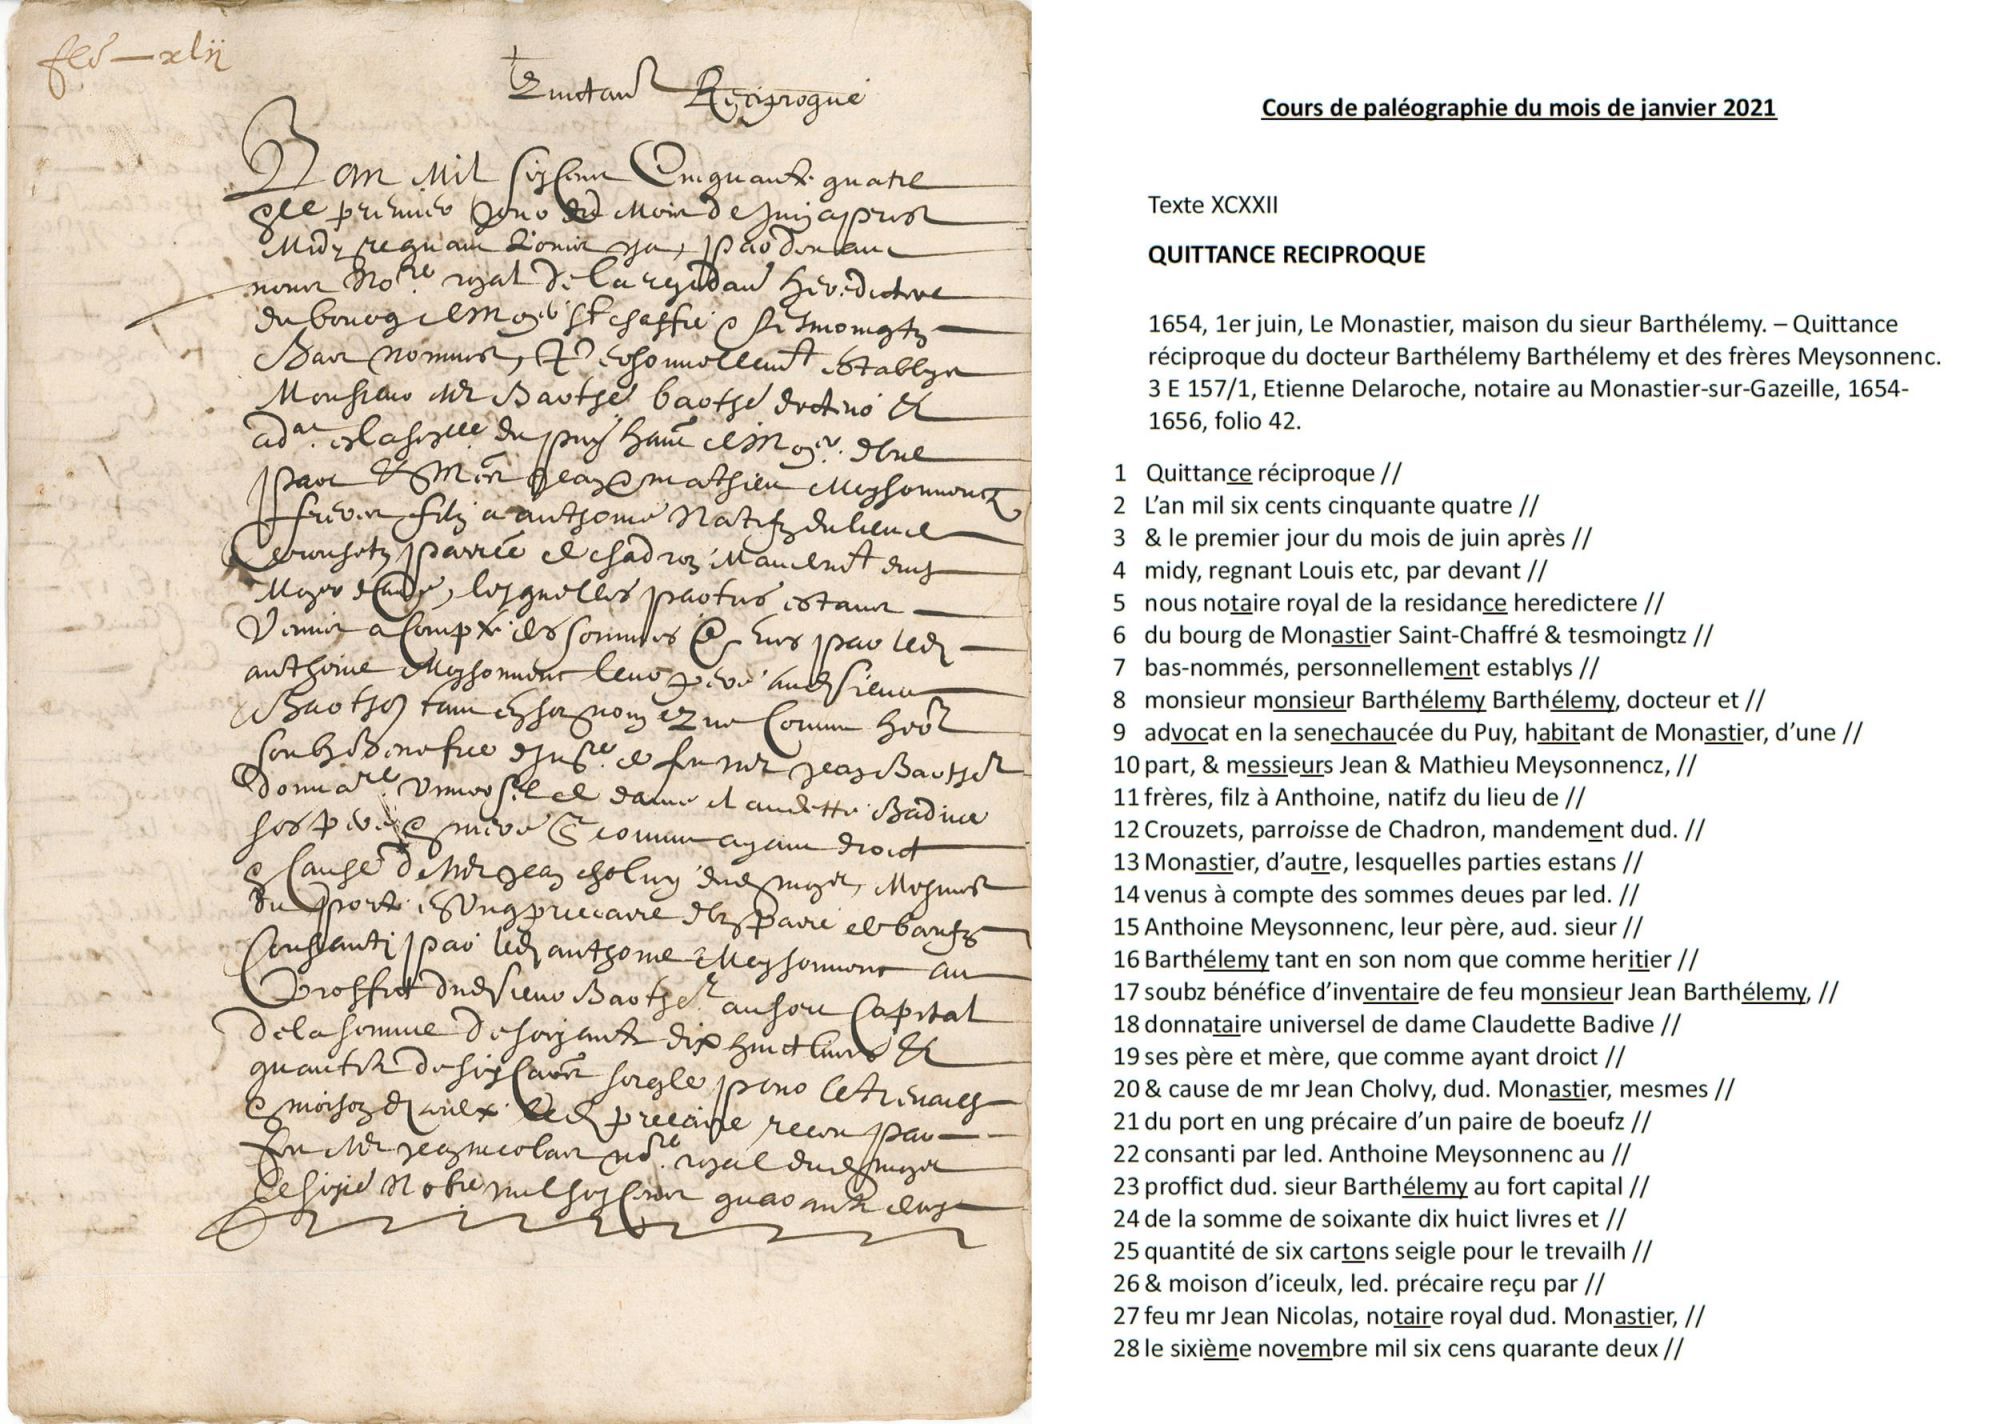 feo xlii
Quittance Reciproque
L'an mil six cens cinquante quatre
& le premier jour du mois de juin apres
midy regnant Louis etc, par devant
nous no.re royal de la residance heredictere
du bourg de Mo.er St chaffre & tesmoingtz
bas nommes, personnellemt establys
Monsieur Mr Barthé barthé docteur et
advat en la senée du puy habt de Mo.er d'une
part & Mrs Jean & mathieu Meysonnencz
freres filz a anthoine natifz du lieu de
Crouzetz parroe de chadron mandemt dud
Moer d'aue, lesquelles parties estans
venus a compte des sommes deues par led
anthoine Meysonnenc leur pere aud sieur
Barthe tant en son nom que comme herer
soubz benefice d'invre de feu mr jean Barthe
donnare universel de dame claudette Badive
ses pere & mere que comme ayant droict
& cause de mr jean cholvy dud moer, mesmes
du port en ung precaire d'un paire de bœufz
consanti par led anthoine Meysonnenc au
proffict dud sieur Barthe au fort capital
de la somme de soixante dix huict livres et
quantité de six carons seigle pour le trevailh
& moison d'iceulx led precaire receu par
feu mr jean nicolas nore royal dud moer
le sixie nobre mil six cens quarante deux
Cours de paléographie du mois de janvier 2021
Texte XCXXII
QUITTANCE RECIPROQUE
1654, 1er juin, Le Monastier, maison du sieur Barthélemy. – Quittance
réciproque du docteur Barthélemy Barthélemy et des frères Meysonnenc.
3 E 157/1, Etienne Delaroche, notaire au Monastier-sur-Gazeille, 1654-
1656, folio 42.
1 Quittance réciproque //
2 L'an mil six cents cinquante quatre //
3 & le premier jour du mois de juin après //
4 midy, regnant Louis etc, par devant //
5 nous notaire royal de la residance heredictere //
6 du bourg de Monastier Saint-Chaffré & tesmoingtz //
7 bas-nommés, personnellement establys //
8 monsieur monsieur Barthélemy Barthélemy, docteur et //
9 advocat en la senechaucée du Puy, habitant de Monastier, d'une //
10 part, & messieurs Jean & Mathieu Meysonnencz, //
11 frères, filz à Anthoine, natifz du lieu de //
12 Crouzets, parroisse de Chadron, mandement dud. //
13 Monastier, d'autre, lesquelles parties estans //
14 venus à compte des sommes deues par led. //
15 Anthoine Meysonnenc, leur père, aud. sieur //
16 Barthélemy tant en son nom que comme heritier //
17 soubz bénéfice d'inventaire de feu monsieur Jean Barthélemy, //
18 donnataire universel de dame Claudette Badive //
19 ses père et mère, que comme ayant droict //
20 & cause de mr Jean Cholvy, dud. Monastier, mesmes //
21 du port en ung précaire d'un paire de boeufz //
22 consanti par led. Anthoine Meysonnenc au //
23 proffict dud. sieur Barthélemy au fort capital //
24 de la somme de soixante dix huict livres et //
25 quantité de six cartons seigle pour le trevailh //
26 & moison d'iceulx, led. précaire reçu par //
27 feu mr Jean Nicolas, notaire royal dud. Monastier, //
28 le sixième novembre mil six cens quarante deux //